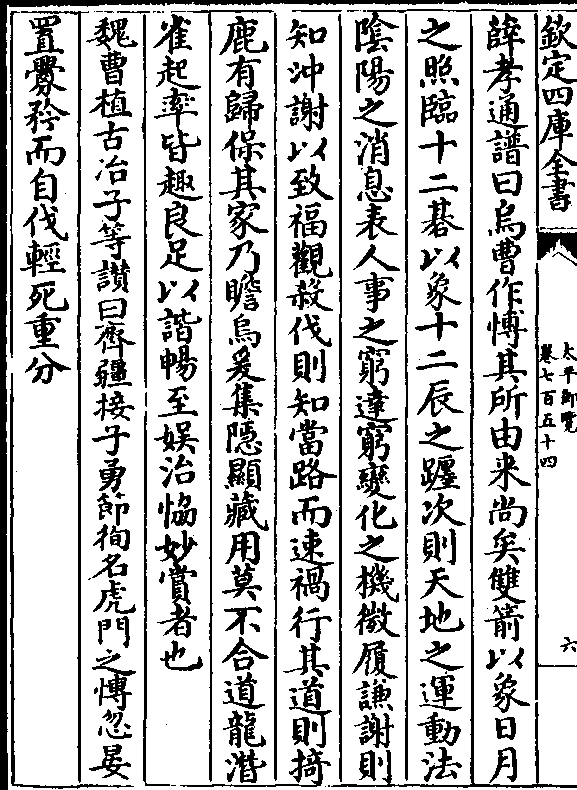 欽定四庫全書
太平御覽
卷七百五十四
六
薛孝通譜曰烏曹作愽其所由来尚矣雙箭以象日月
之照臨十二棊以象十二辰之躔次則天地之運動法
陰陽之消息表人事之窮達窮變化之機微履謙謝則
知沖謝以致福觀殺伐則知當路而速禍行其道則掎
鹿有歸保其家乃瞻烏爰集隱顯藏用莫不合道龍潛
雀起率皆趣良足以諧暢至娱治恊妙賞者也
魏曹植古冶子等讃曰齊疆接子勇節徇名虎門之愽忽晏
置釁矜而自伐輕死重分